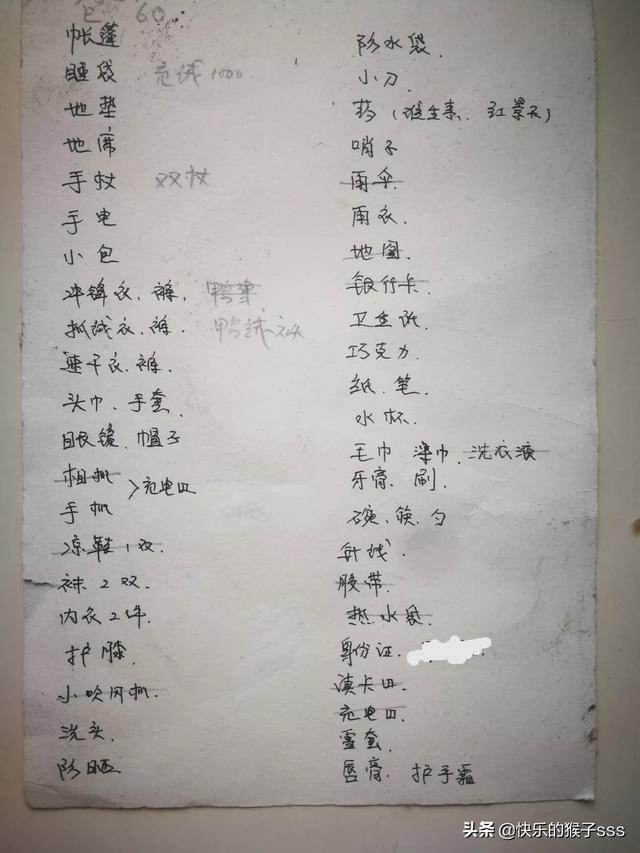 包 60
帐蓬
睡袋 充绒1000
地垫
地席
手杖 双杖
手电
小包
冲锋衣、裤,
抓绒衣、裤. 鸭绒衣
速干衣、裤.
头巾、手套
眼镜、帽子
相机
>充电皿
手机
凉鞋1双
袜2双.
内衣2件
护膝
小吹风机
洗头.
防晒
防水袋.
小刀
药(维生素、红景天)
哨子
雨伞.
雨衣.
地图.
银行卡.
卫生纸.
巧克力.
纸、笔.
水杯.
毛巾 洗衣液
牙膏、刷.
碗、筷、勺
针线.
胶带.
热水袋.
身份证.
充电皿.
雪套.
唇膏. 护手霜
头条 @快乐的猴子sss